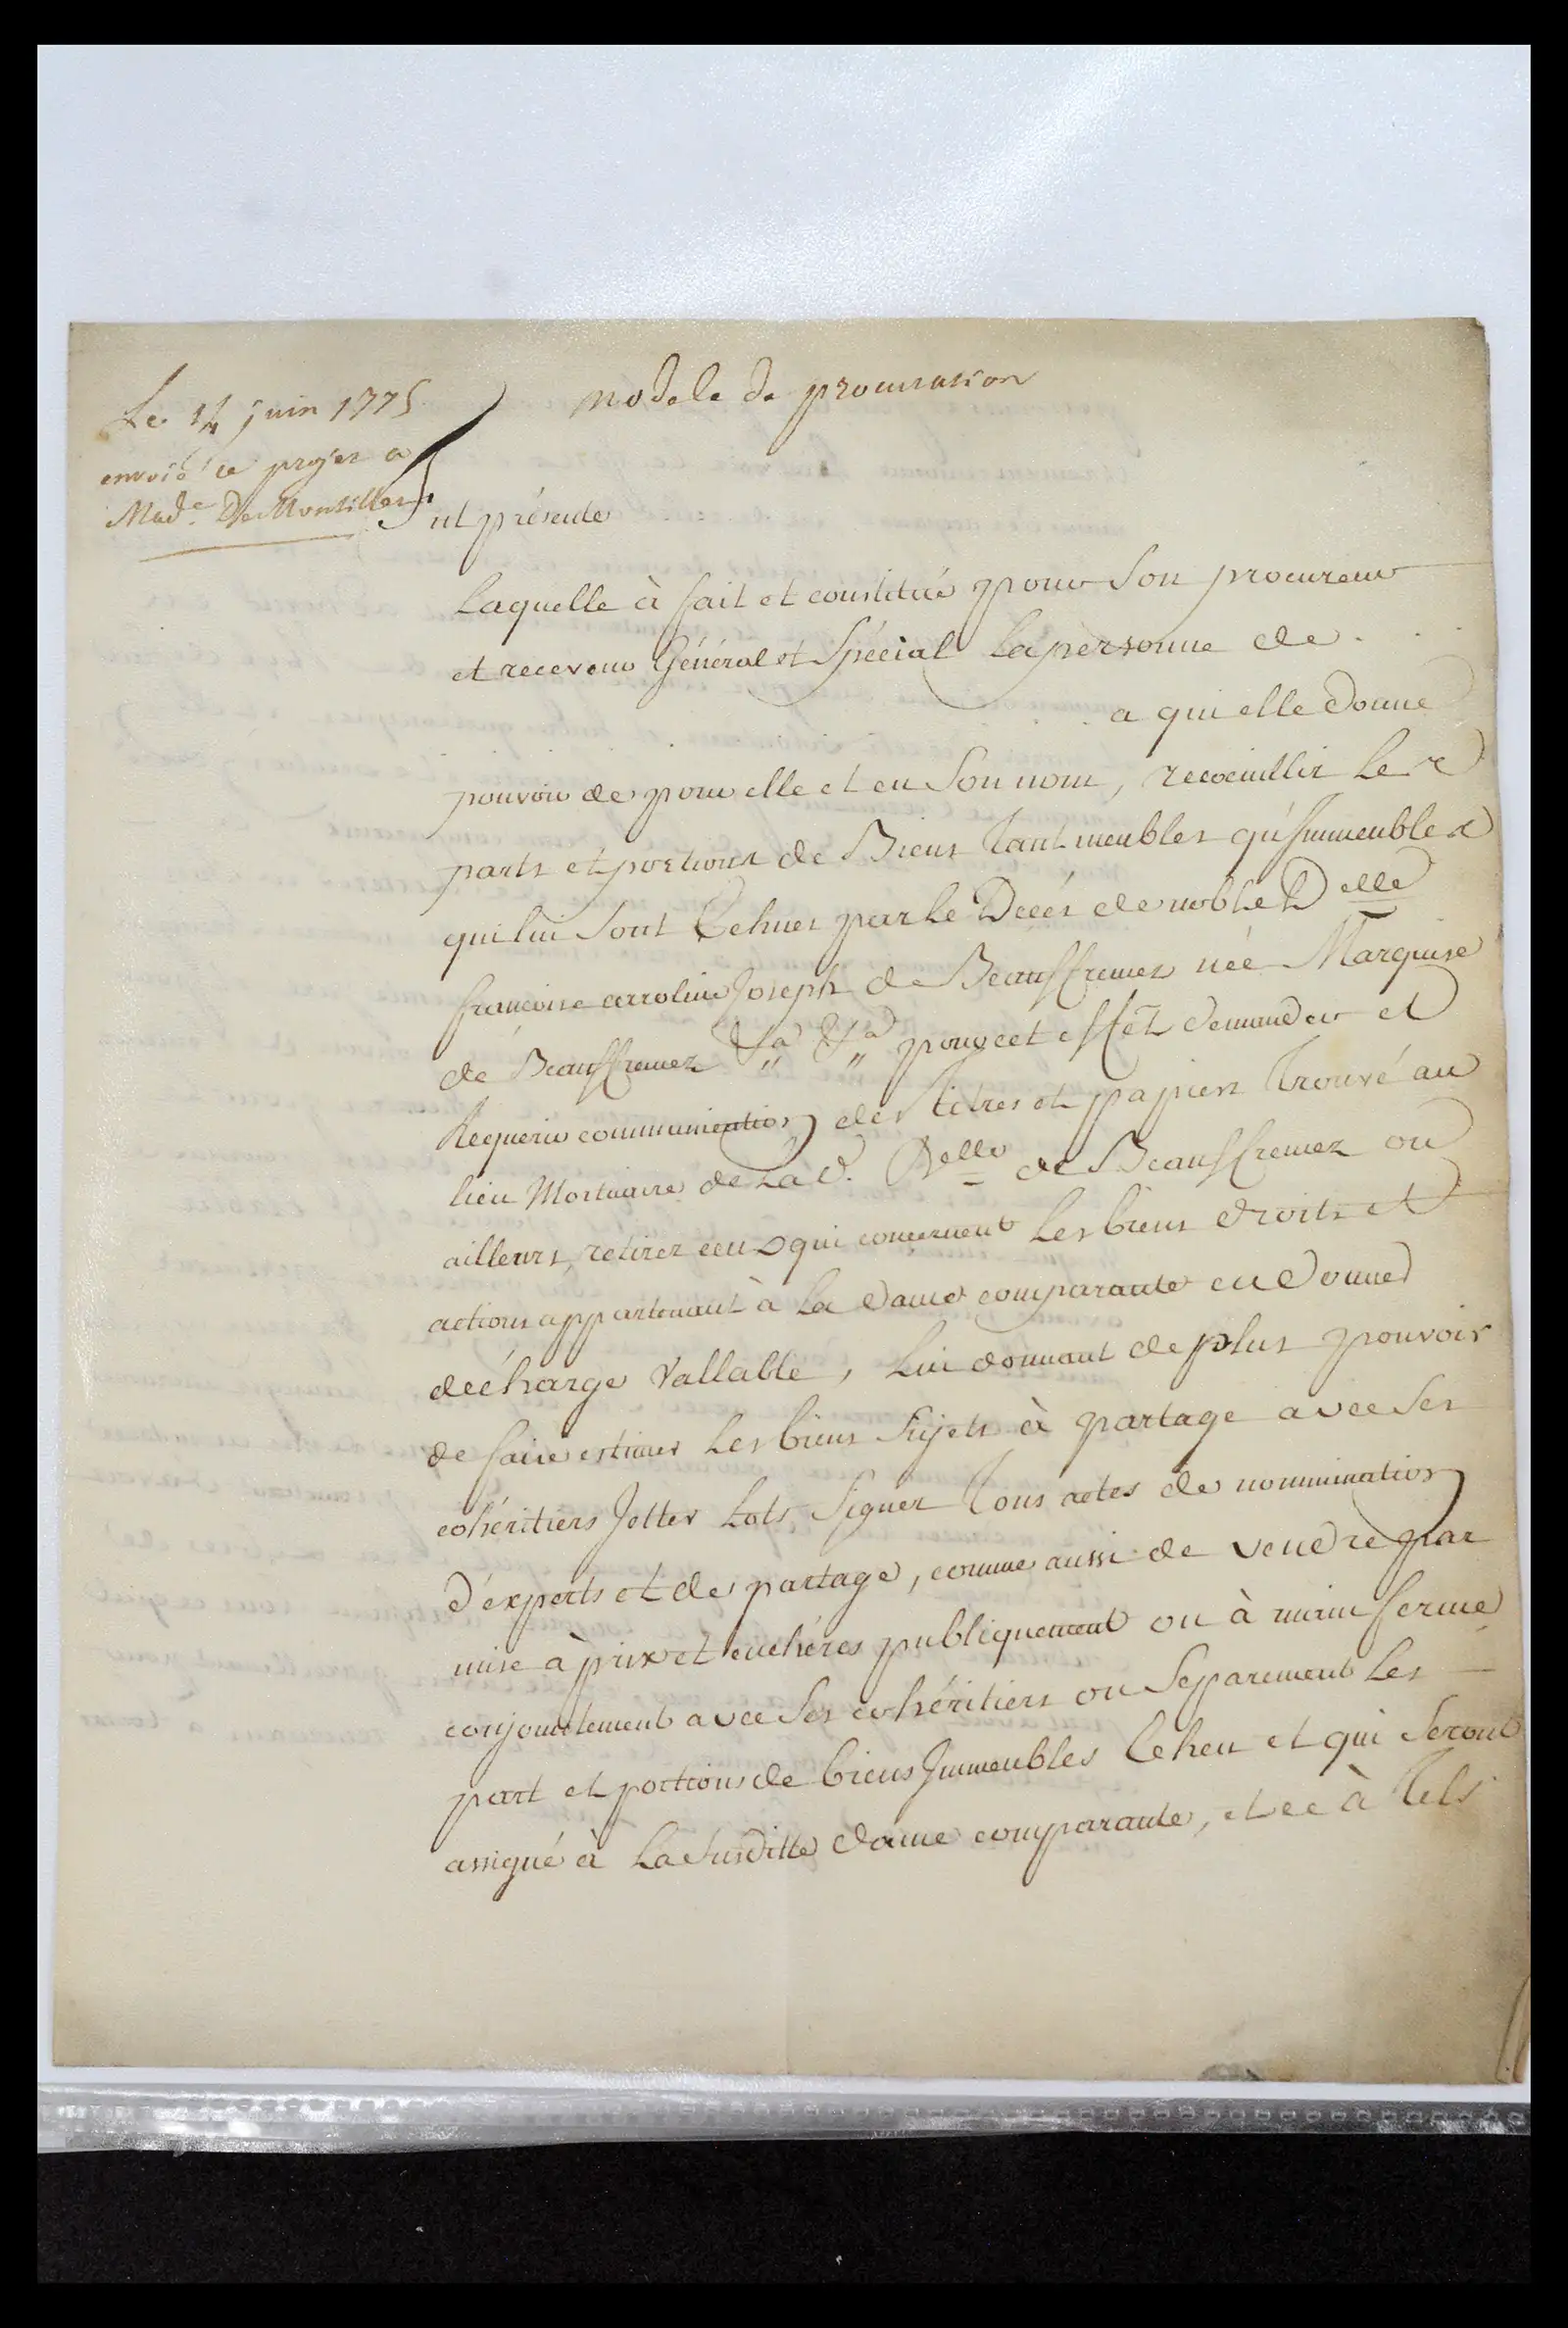 Le 14 juin 1775
envoié ce projet a
Mad.e De Montiller
modele de procuration
fut présente
Laquelle à fait et constitué pour Son procureur
et receveur Général et Spécial La personne de
a qui elle Donne
pouvoir de pour elle et en Son nom, receuillir Les
parts et portions de Biens tant meubles qu'Immeubles
qui lui Sont Echues par le Décés de noble Delle
francoise carroline Joseph de Beauffremez neé Marquise
de Beauffremez &a &a pour cet effet demander et
Requerir communication des titres et papiers trouvé au
lieu Mortuaire de La d. Delle de Beauffremez ou
ailleurs, retirer ceux qui concernent Les biens droits et
actions appartenant à La dame comparante en Donner
décharge Vallable, Lui donnant de plus pouvoir
de faire estimer Les biens Sujets à partage avec Ses
cohéritiers Jetter Lots Signer tous actes de nommination
d'experts et de partage, comme aussi de vendre par
mise à prix et enchéres publiquement ou à main ferme
conjointement avec Ses cohéritiers ou Sepparement Les
part et portions de biens Immeubles Echeu et qui Seront
assigné à La Susditte dame comparante, et ce à tels